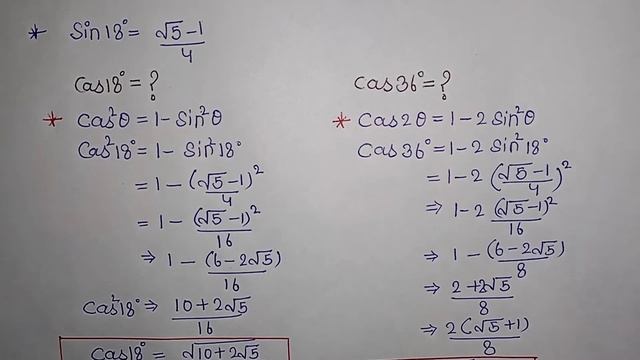 * Sin18° = √5-1/4
Cos18° = ?
* Cos²θ = 1 - Sin²θ
Cos²18° = 1 - Sin²18°
= 1 - (√5-1/4)²
= 1 - (√5-1)²/16
⇒ 1 - (6-2√5)/16
Cos²18° ⇒ 10+2√5/16
Cos18° = √10+2√5
Cos36° = ?
* Cos2θ = 1 - 2Sin²θ
Cos36° = 1 - 2Sin²18°
= 1 - 2(√5-1/4)²
⇒ 1 - 2(√5-1)²/16
⇒ 1 - (6-2√5)/8
⇒ 2+2√5/8
⇒ 2(√5+1)/8